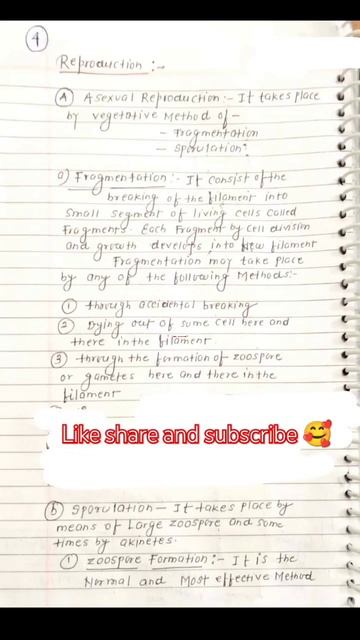 4
Reproduction :-
A Asexual Reproduction :- It takes place
by vegetative Method of -
- Fragmentation
- Sporulation:
a) Fragmentation :- It consist of the
breaking of the filament into
Small Segment of living cells Called
Fragments. Each Fragment by cell division
and growth develops into New filament
Fragmentation may take place
by any of the following Methods:-
1 through accidental breaking
2 Drying out of some cell here and
there in the filament
3 through the formation of zoospore
or gametes here and there in the
filament
Like share and subscribe 🥰
b Sporulation - It takes place by
means of Large zoospore and some
times by akinetes.
1 zoospore Formation :- It is the
Normal and Most effective Method